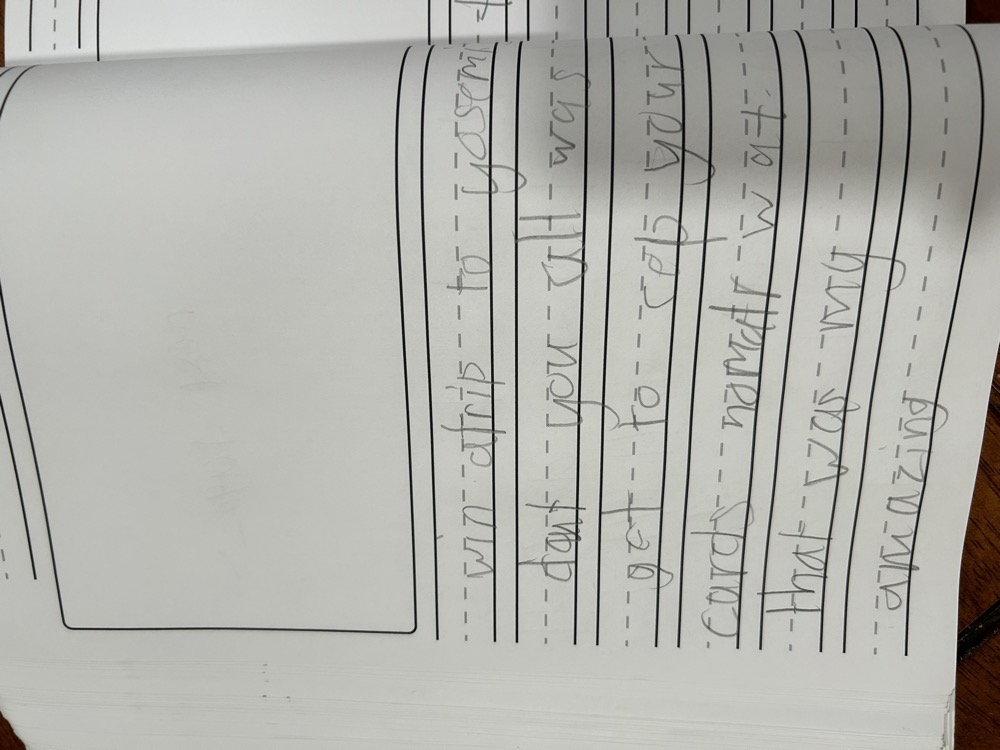 win atrip to yosemi
you all was
get to cep your
cards nomatr wat.
that was my
amazing